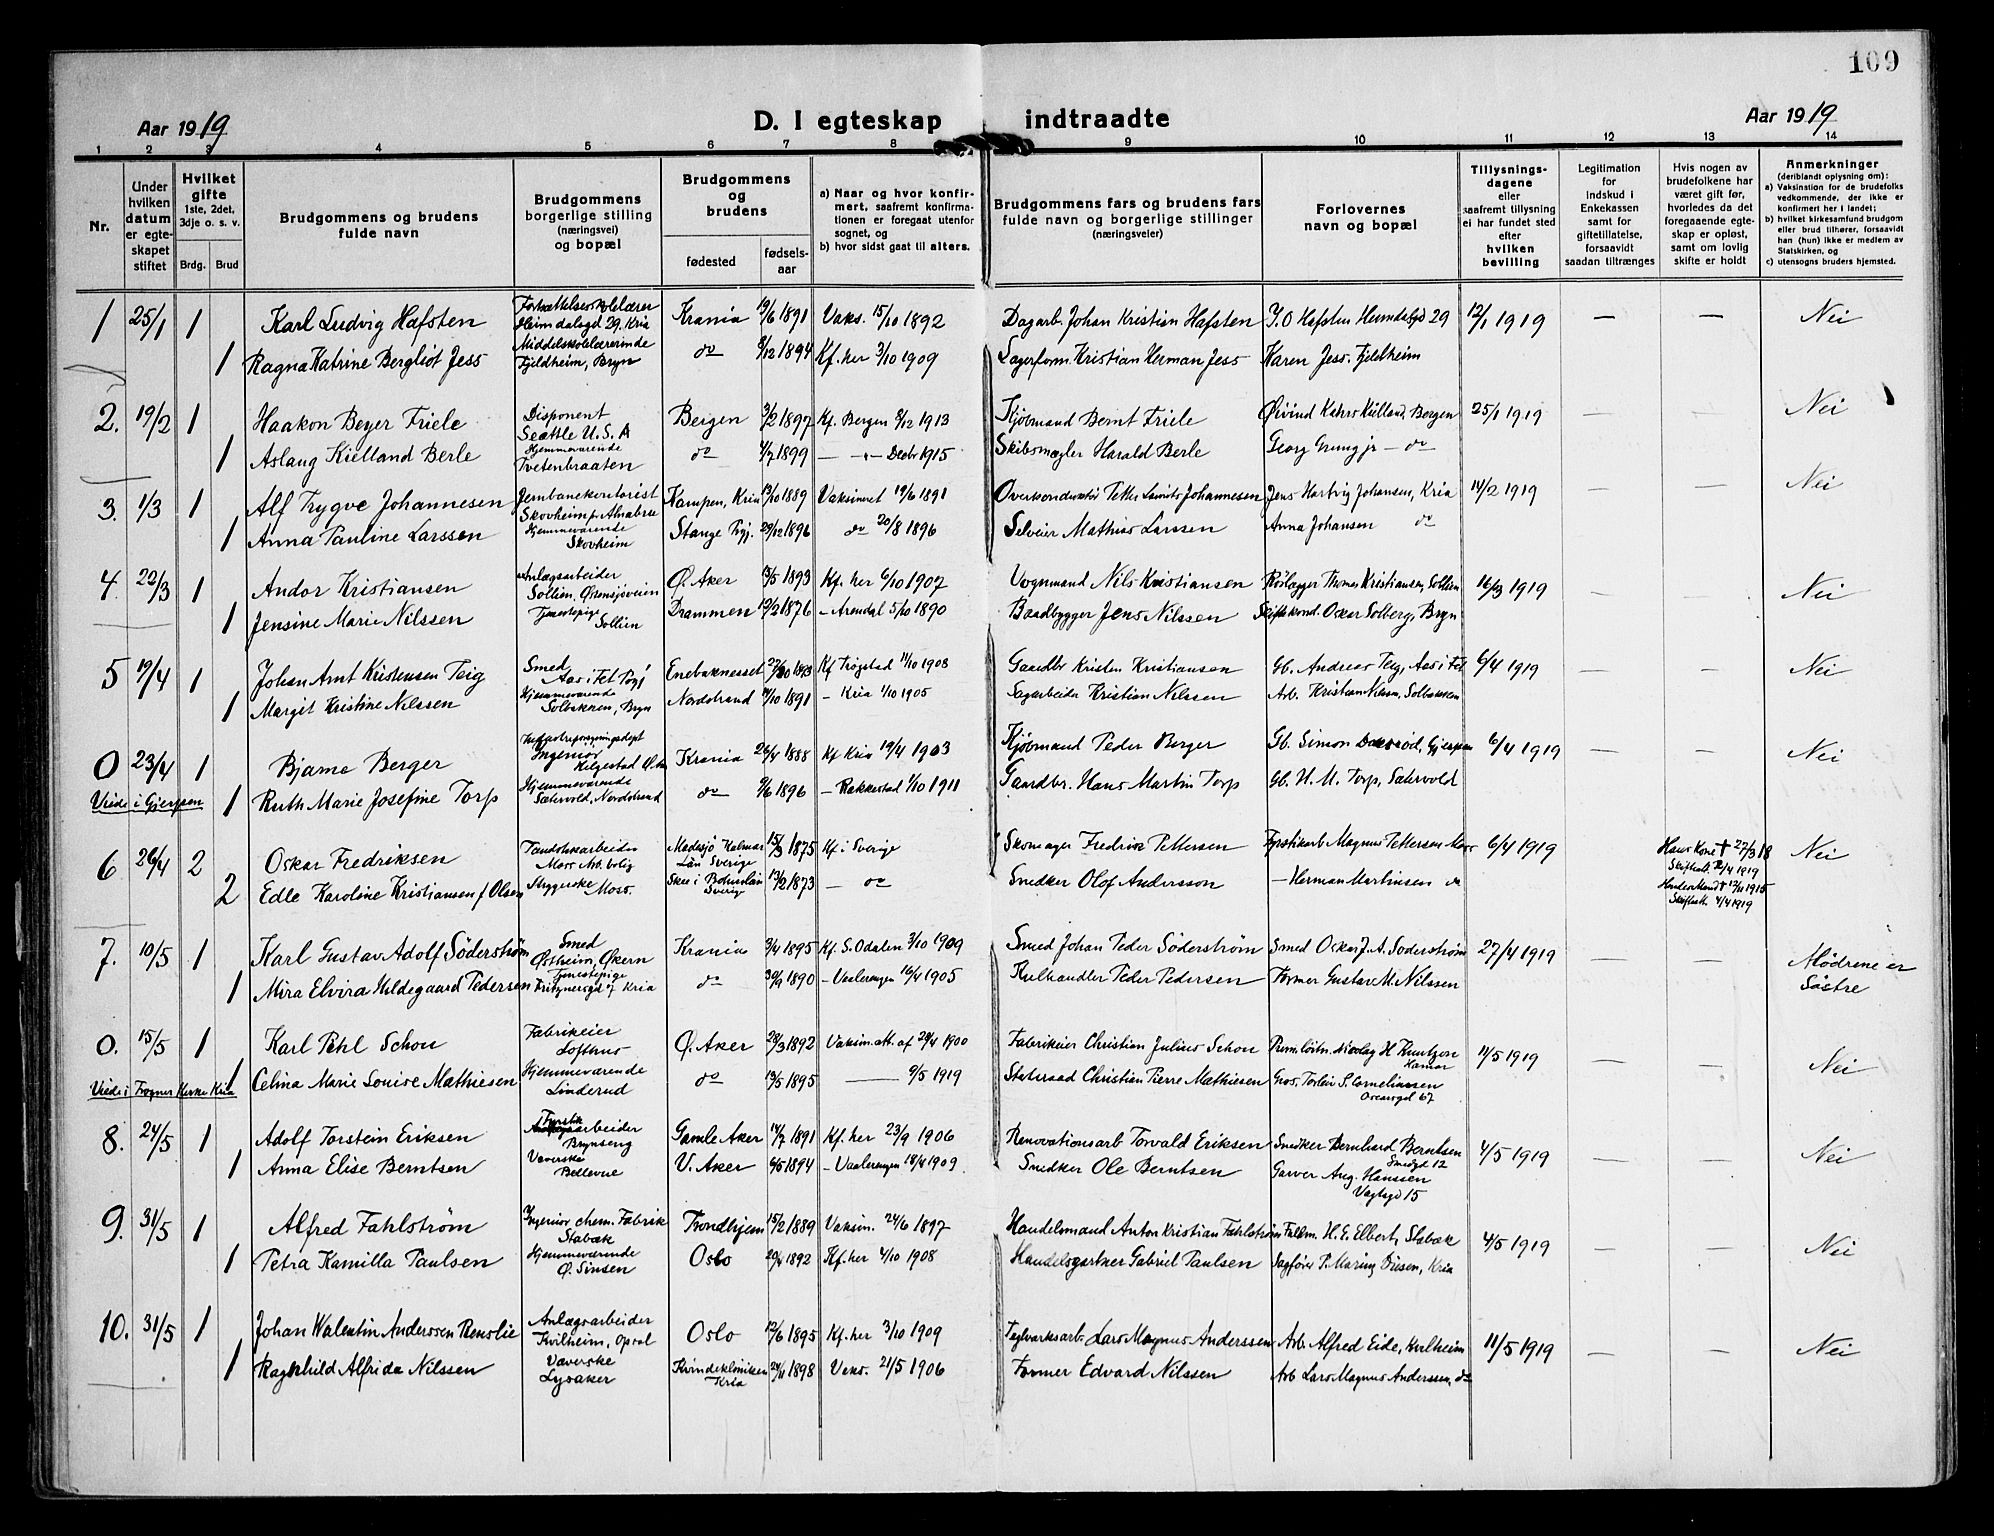 109
Aar 1919
D. I egteskap indtraadte
Aar 1919
1 2 3 4 5 6 7 8 9 10 11 12 13 14
Nr.
Under hvilken datum er egteskapet stiftet
Hvilket gifte 1ste, 2det, 3dje o. s. v.
Brdg. Brud
Brudgommens og brudens fulde navn
Brudgommens borgerlige stilling (næringsvei) og bopæl
Brudgommens og brudens
fødested
fødselsaar
a) Naar og hvor konfirmert, saafremt konfirmationen er foregaat utenfor sognet, og
b) hvor sidst gaat til alters.
Brudgommens fars og brudens fars fulde navn og borgerlige stillinger (næringsveier)
Forlovernes navn og bopæl
Tillysningsdagene eller saafremt tillysning ei har fundet sted efter hvilken bevilling
Legitimation for indskud i Enkekassen samt for giftetillatelse, forsaavidt saadan tiltrænges
Hvis nogen av brudefolkene har været gift før, hvorledes da det foregaaende egteskap er opløst, samt om lovlig skifte er holdt
Anmerkninger (deriblandt oplysning om):
a) Vaksination for de brudefolks vedkommende, der ikke er konfirmert her i landet;
b) hvilket kirkesamfund brudgom eller brud tilhører, forsaavidt han (hun) ikke er medlem av Statskirken, og
c) utensogns bruders hjemsted.
1 25/1 1 Karl Ludvig Hafsten Fortsættelsesskolelærer Heimdalsgd 29. Kria Krania 19/6 1891 Vaks. 15/10 1892 Dagarb. Johan Kristian Hafsten J.O Hafsten Heimdalsgd 29 12/1 1919 — — Nei
1 Ragna Katrine Bergliot Jess Middelskolelærerinde Fjeldheim, Bryn do 8/12 1894 Kf. her 3/10 1909 Lagerform. Kristian Herman Jess Karen Jess, Fjeldheim
2. 19/2 1 Haakon Beyer Friele Disponent Seattle U.S.A Bergen 3/2 1897 Kf. Bergen 8/12 1913 Kjøbmand Bernt Friele Øivind Kahrs Kielland, Bergen 25/1 1919 — — Nei
1 Aslaug Kielland Berle Hjemmeværende Tvetenbraaten do 4/7 1899 — " — Decbr 1915 Skibsmægler Harald Berle Georg Grung jr — do
3. 1/3 1 Alf Trygve Johannesen Jernbanekontorist Skovheim pr Alnabru Kampen, Kria 13/10 1889 Vaksinert 19/6 1891 Overkonduktør Petter Lauritz Johannesen Jens Hartvig Johansen, Kria 14/2 1919 — — Nei
1 Anna Pauline Larssen Hjemmeværende Skovheim Stange Pgj. 29/12 1896 do 20/8 1896 Selveier Mathias Larssen Anna Johansen do
4. 22/3 1 Andor Kristiansen Anlægsarbeider Sollien, Østensjøveien Ø. Aker 13/5 1893 Kf. her 6/10 1907 Vognmand Nils Kristiansen Rørlægger Thomas Kristiansen, Sollien 16/3 1919 — — Nei
1 Jensine Marie Nilssen Tjenestepige Sollien Drammen 12/2 1876 — Arendal 5/10 1890 Baadbygger Jens Nilssen Skiftekond. Oscar Solberg, Bryn
5 19/4 1 Johan Arnt Kristensen Teig Smed Aas i Fet Pgj Enebaknesset 27/10 1893 Kf Trøgstad 11/10 1908 Gaardbr Kristen Kristiansen Gb. Andreas Teig, Aas i Fet 6/4 1919 — — Nei
1 Margit Kristine Nilssen Hjemmeværende Solbakken, Bryn Nordstrand 14/10 1891 — Kria 1/10 1905 Sagarbeider Kristian Nilssen Arb. Kristian Nilssen, Solbakken
0 23/4 1 Bjarne Berger Ingeniør Krania 26/4 1888 Kf Kria 19/4 1903 Kjøbmand Peder Berger Gb. Simon Gjerpen 6/4 1919 — — Nei
Viede i Gjerpen 1 Ruth Marie Josefine Torp Hjemmeværende Sætervold, Nordstrand do 9/6 1896 — Rakkestad 1/10 1911 Gaardbr. Hans Martin Torp Gb. H. M. Torp, Sætervold
6 26/4 2 Oskar Fredriksen Moss Arb. bolig Madesjö Kalmar Län Sverige 15/3 1875 Kf. i Sverige Skomager Fredrik Pettersen Fyrstikarb Magnus Pettersen Moss 6/4 1919 Hans Kone † 27/3 18 Skifteatt. 12/4 1919 Nei
2 Edle Karoline Kristiansen f Olsen Strygerske Moss Skee i Bohuslän Sverige 13/2 1873 — do Snedker Olof Andersson — Herman Martinsen do Hendes Mand † 12/11 1915 Skifteatt. 4/4 1919
7. 10/5 1 Karl Gustav Adolf Söderstrøm Smed Østheim, Økern Krania 3/4 1895 Kf. S. Odalen 3/10 1909 Smed Johan Peder Söderstrøm Smed Oskar J. A. Söderstrøm 27/4 1919 — — Mødrene er Søstre
1 Mira Elvira Hildegaard Pedersen Tjenestepige Kria do 30/9 1890 — Vaalerengen 16/4 1905 Kulhandler Peder Pedersen Former Gustav M. Nilssen
0. 15/5 1 Karl Pihl Schou Fabrikeier Lofthus Ø. Aker 28/3 1892 Vaksin.att. af 29/4 1900 Fabrikeier Christian Julius Schou Prem.løitn. Nicolay H Knutzon Hamar 11/5 1919 — — Nei
Viede i Frogner Kirke Kria 1 Celina Marie Louise Mathiesen Hjemmeværende Linderud do 13/5 1895 — 9/5 1919 Statsraad Christian Pierre Mathiesen Gros. Torleiv S. Corneliussen Oscarsgd 67
8. 24/5 1 Adolf Torstein Eriksen Fyrstikarbeider Brynseng Gamle Aker 14/7 1891 Kf. her 23/9 1906 Renovationsarb Torvald Eriksen Snedker Bernhard Berntsen Smedgd 12 4/5 1919 — — Nei
1 Anna Elise Berntsen Væverske Bellevue V. Aker 6/5 1894 — Vaalerengen 18/4 1909 Snedker Ole Berntsen Garver Aug. Hanssen Vagtsgd 15
9. 31/5 1 Alfred Fahlstrøm Ingeniør chem. Fabrik Stabæk Trondhjem 15/2 1889 Vaksin. 24/6 1897 Handelsmand Anton Kristian Fahlstrøm H. E. Elbert, Stabæk 4/5 1919 — — Nei
1 Petra Kamilla Paulsen Hjemmeværende Ø. Sinsen Oslo 20/4 1892 Kf. her 4/10 1908 Handelsgartner Gabriel Paulsen Sagfører P. Marius Diesen, Kria
10. 31/5 1 Johan Walentin Anderssen Renslie Anlægsarbeider Kvilheim, Opsal Oslo 12/6 1895 Kf. her 3/10 1909 Teglværksarb. Lars Magnus Anderssen Arb. Alfred Eide, Kvilheim 11/5 1919 — — Nei
1 Ragnhild Alfrida Nilssen Væverske Lysaker Kvindeklinikken Kria 24/11 1898 Vaks. 21/5 1906 Former Edvard Nilssen Arb Lars Magnus Anderssen, do